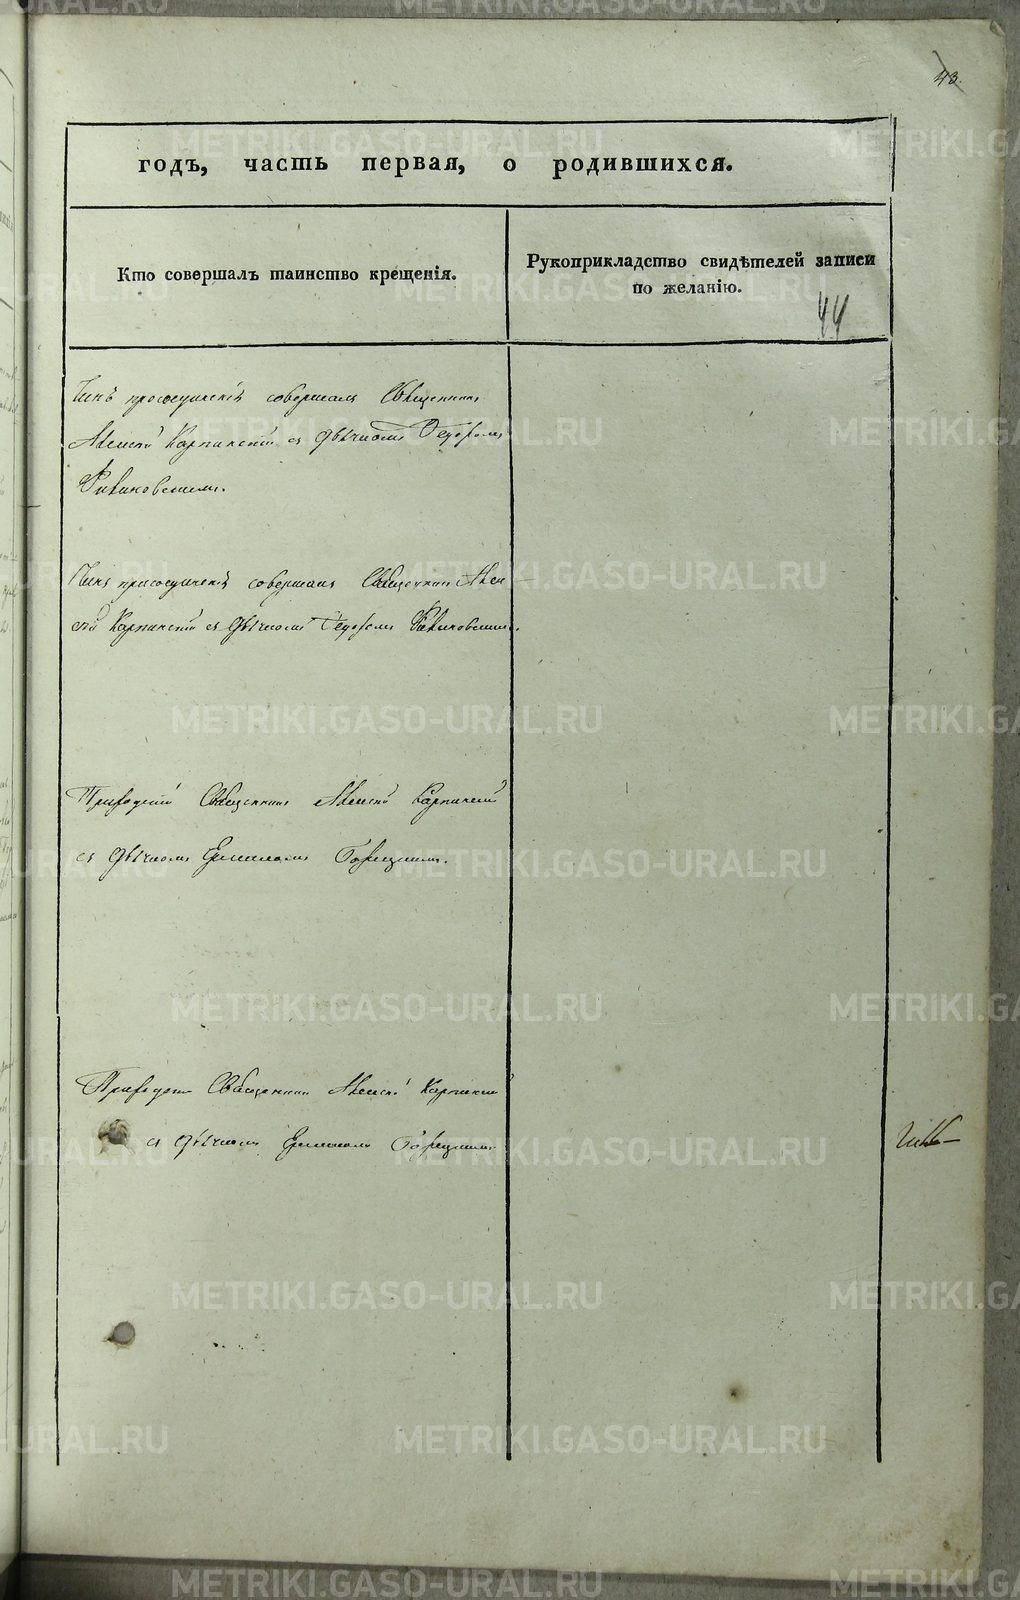 43.
годъ, часть первая, о родившихся.
Кто совершалъ таинство крещенія.
Рукоприкладство свидѣтелей записи
по желанію.
44
Чинъ присоединенія совершалъ Священникъ
Алексій Карпинскій съ дьячкомъ Ѳедоромъ
Чинъ присоединенія совершалъ Священникъ Алек
сій Карпинскій съ дьячкомъ Ѳедоромъ
Приходскій Священникъ Алексій Карпинскій
съ дьячкомъ
Приходск Священникъ Алексій Карпинскій
съ дьячкомъ
METRIKI.GASO-URAL.RU